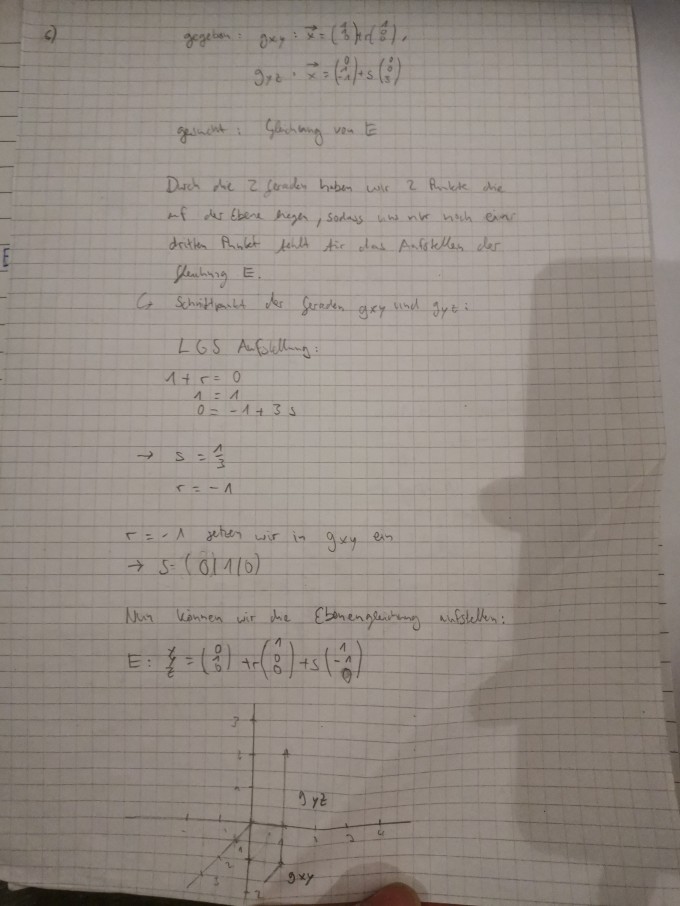 c) gegeben: gxy : x⃗ = (1 1 0) + r (1 0 0),
gyz : x⃗ = (0 1 -1) + s (0 0 3)
gesucht: Gleichung von E
Durch die 2 Geraden haben wir 2 Punkte die
auf der Ebene liegen, sodass uns nur noch einer
dritten Punkt fehlt für das Aufstellen der
Gleichung E.
↳ Schnittpunkt der Geraden gxy und gyz:
LGS Aufstellung:
1 + r = 0
1 = 1
0 = -1 + 3 s
→ s = 1/3
r = -1
r = -1 setzen wir in gxy ein
→ S = (0|1|0)
Nun können wir die Ebenengleichung aufstellen:
E: x y z = (0 1 0) + r (1 0 0) + s (1 -1 0)
3
1
gyz
1
2
4
1
2
3
gxy
2
E